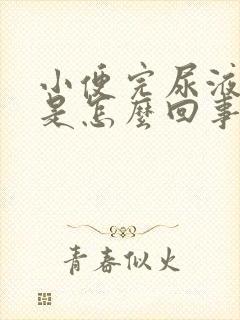 小便完尿液
是怎麽回事
青春似火